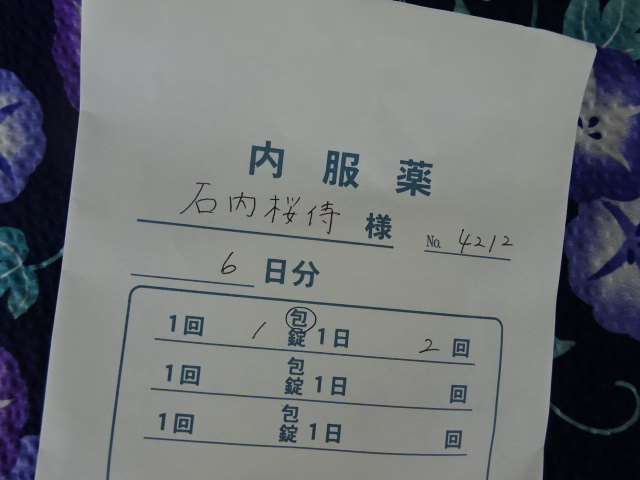 内服薬
石内桜侍 様 No. 4212
6 日分
1回 1 包 錠 1日 2 回
1回 包 錠 1日 回
1回 包 錠 1日 回